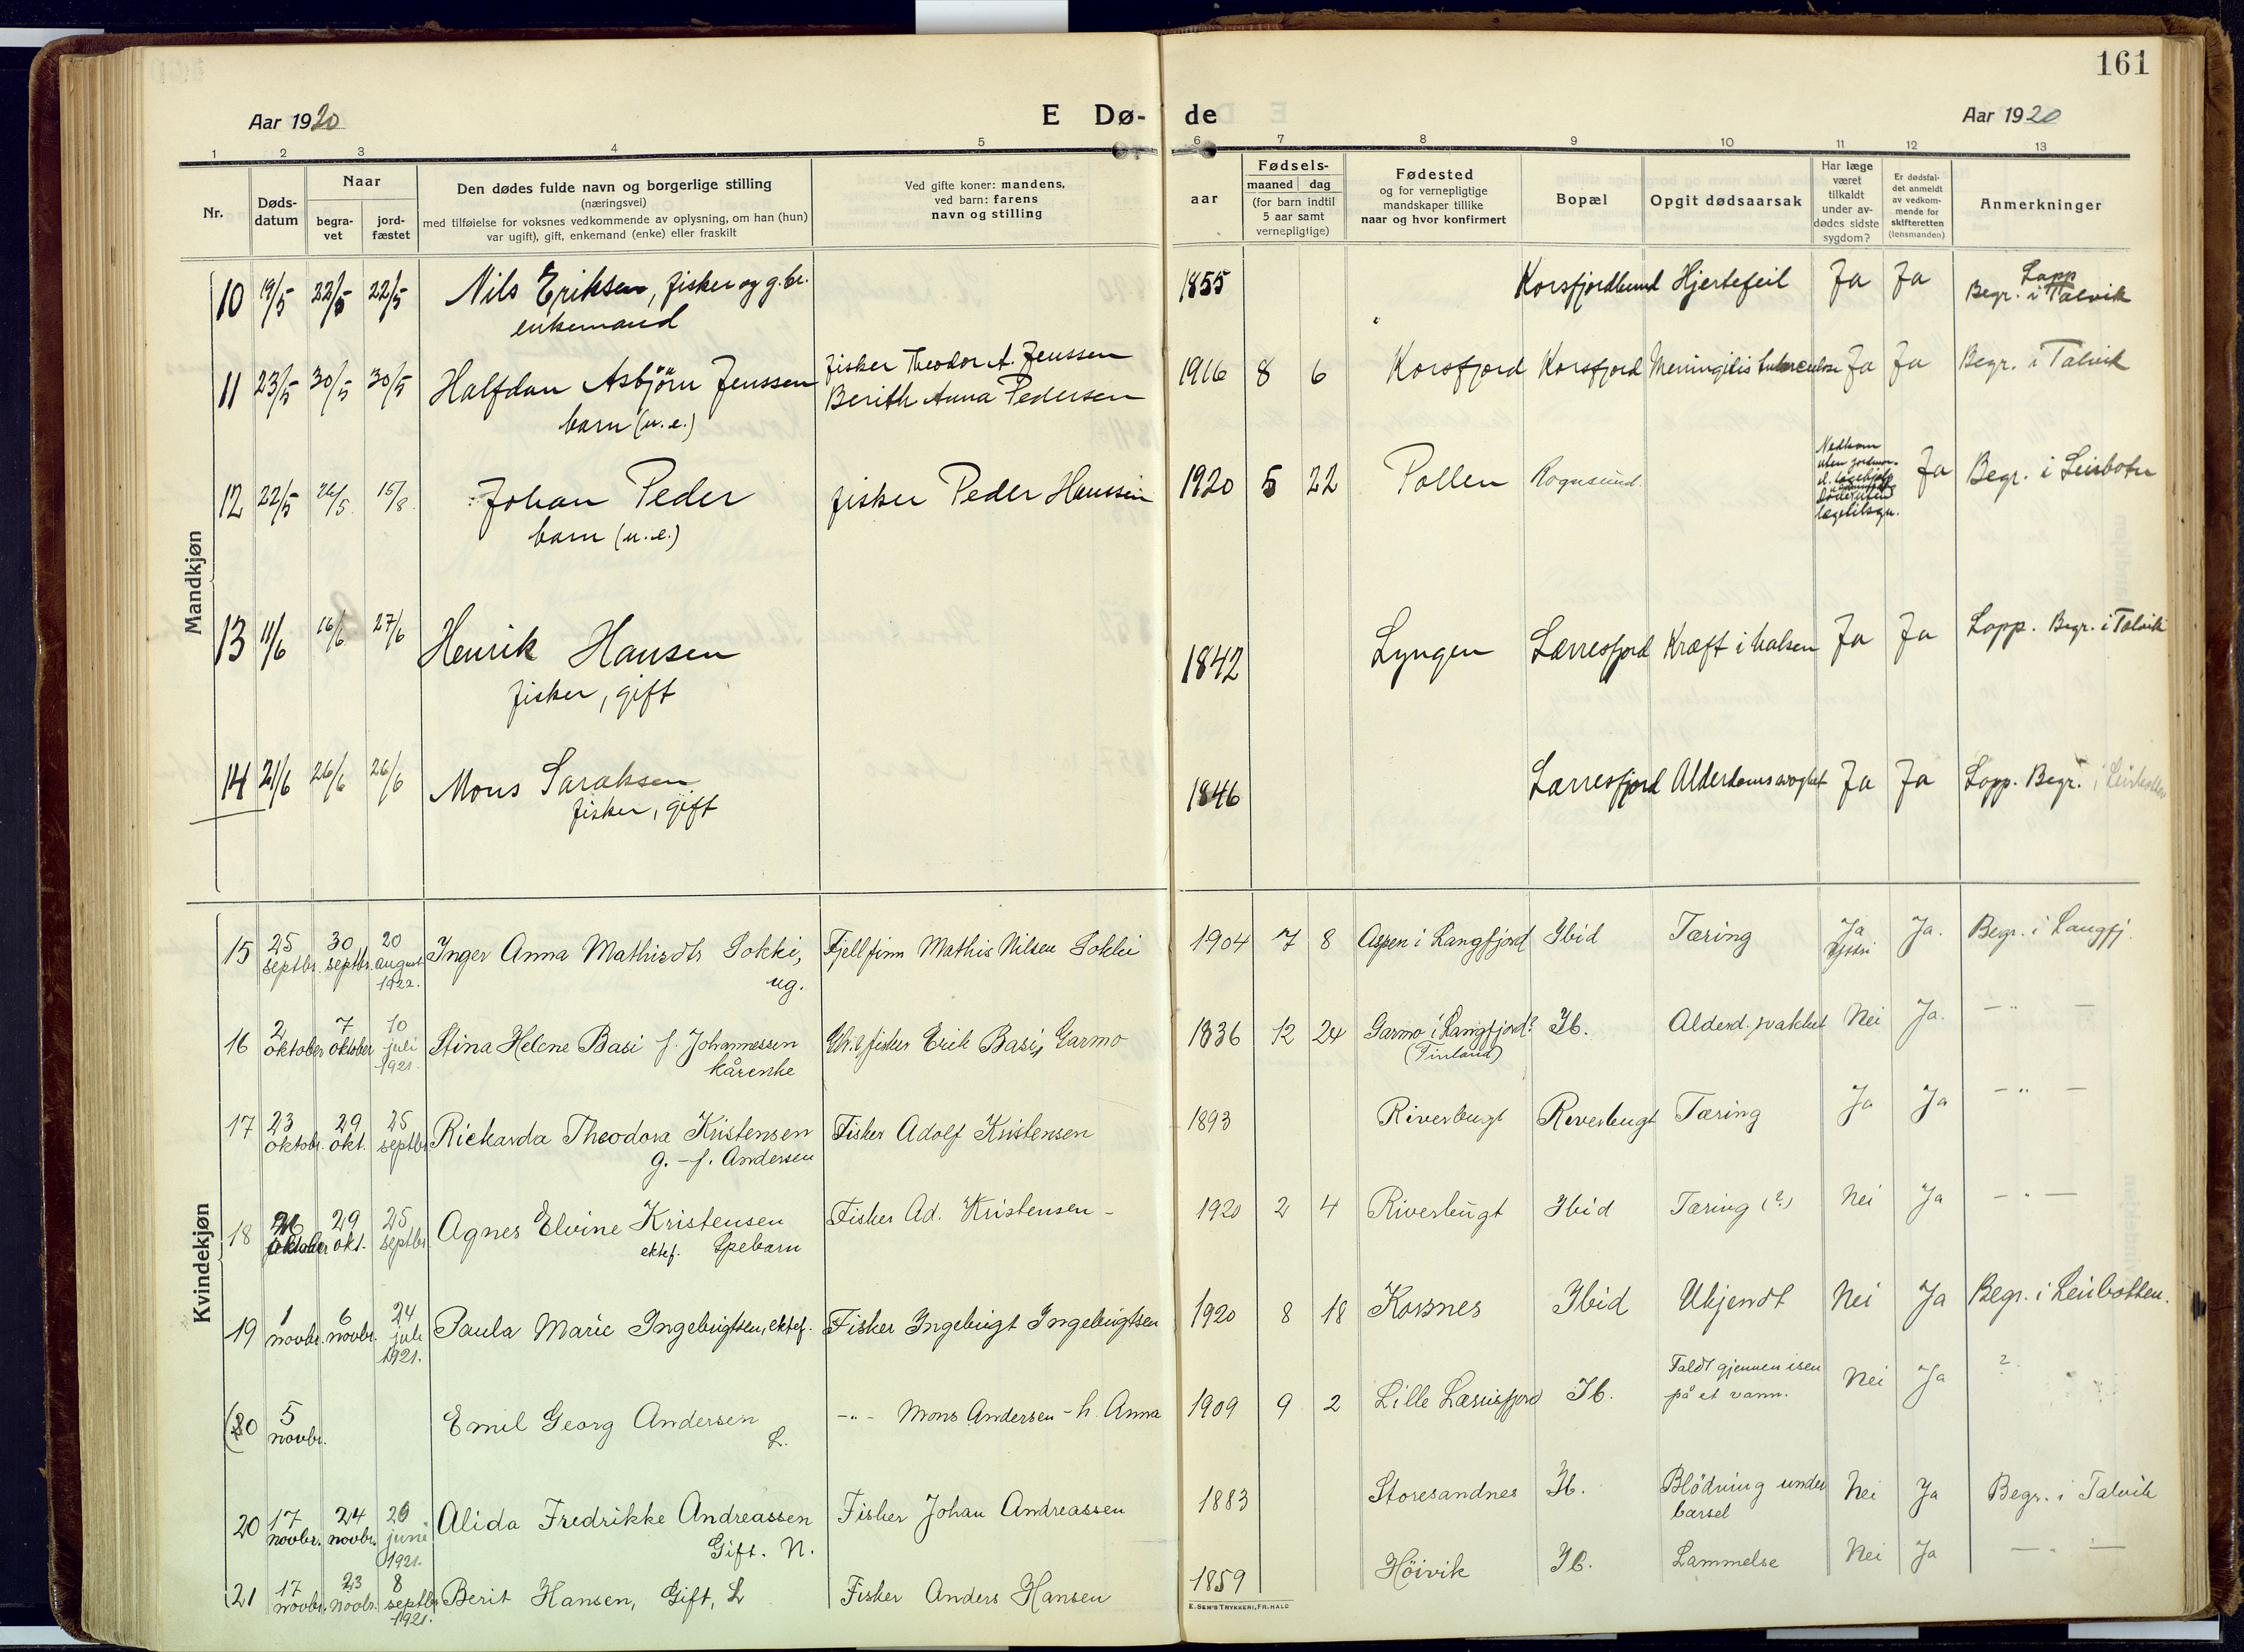 161
Aar 1920
E Dø-
de
Aar 1920
1 2 3 4 5 6 7 8 9 10 11 12 13
Nr.
Døds-
datum
Naar
begra-
vet
jord-
fæstet
Den dødes fulde navn og borgerlige stilling
(næringsvei)
med tilføielse for voksnes vedkommende av oplysning, om han (hun)
var ugift), gift, enkemand (enke) eller fraskilt
Ved gifte koner: mandens,
ved barn: farens
navn og stilling
aar
Fødsels-
maaned dag
(for barn indtil
5 aar samt
vernepligtige)
Fødested
og for vernepligtige
mandskaper tillike
naar og hvor konfirmert
Bopæl
Opgit dødsaarsak
Har læge
været
tilkaldt
under av-
dødes sidste
sygdom?
Er dødsfal-
det anmeldt
av vedkom-
mende for
skifteretten
(lensmanden)
Anmerkninger
Mandkjøn
10 19/5 22/5 22/5 Nils Eriksen, fisker og g.br.
enkemand
1855 Korsfjordbund Hjertefeil Ja Ja Lapp
Begr. i Talvik
11 23/5 30/5 30/5 Halfdan Asbjörn Jenssen
barn (u.e.)
fisker Theodor A. Jenssen
Berith Anna Pedersen
1916 8 6 Korsfjord Korsfjord Meningitis tuberculose Ja Ja Begr. i Talvik
12 22/5 26/5. 15/8. Johan Peder
barn (u.e.)
fisker Peder Hanssen
1920 5 22 Pollen Rognsund.
Nedkom
uten jordmor-
el. lægehjelp
lægetilsyn.
Ja Begr. i Leirboten
13 11/6 16/6 27/6 Henrik Hansen
fisker, gift
1842 Lyngen Lærresfjord Kræft i halsen Ja Ja Lapp. Begr. i Talvik
14 21/6 26/6 26/6 Mons Saraksen
fisker, gift
1846 Lærresfjord Alderdomssvaghet Ja Ja Lapp. Begr. i Leirbotten
Kvindekjøn
15 25 septbr. 30 septbr. 20 august 1922. Inger Anna Mathisdtr Sokki,
ug.
Fjellfinn Mathis Nilsen Sokki
1904 7 8 Aspen i Langfjord Ibid Tæring Ja Ja. Begr. i Langfj.
16 2 oktober 7 oktober 10 juli 1921. Stina Helene Basi f. Johannessen
kårenke
fisker Erik Basi, Garmo
1836 12 24 Garmo i Langfjord?
(Finland)
Ib. Alderd.svakhet Nei Ja. — " —
17 23 oktobr. 29 okt. 25 septbr. Rickarda Theodora Kristensen
g. - f. Andersen
Fisker Adolf Kristensen
1893 Riverbugt Reverbugt Tæring Ja Ja — " —
18 oktober 29 okt. 25 septbr. Agnes Elvine Kristensen
ektef. Spebarn
Fisker Ad. Kristensen -
1920 2 4 Riverbugt Ibid Tæring (?) Nei Ja — " —
19 1 novbr. 6 novbr. 24 juli 1921. Paula Marie Ingebrigtsen, ektef.
Fisker Ingebrigt Ingebrigtsen
1920 8 18 Korsnes Ibid Ukjendt Nei Ja Begr. i Leirbotten.
(20 5 novbr. Emil Georg Andersen
L.
-"- Mons Andersen - h. Anna
1909 9 2 Lille Lærrisfjord Ib. Faldt gjennem isen
på et vann.
Nei Ja ?
20 17 novbr. 24 novbr. 20 juni 1921. Alida Fredrikke Andreassen
Gift. N.
Fisker Johan Andreassen
1883 Storesandnes Ib. Blödning under
barsel
Nei Ja Begr. i Talvik
21 17 novbr. 23 novbr. 8 septbr 1921. Berit Hansen, Gift, L
Fisker Anders Hansen
1859 Höivik Ib. Lammelse Nei Ja — " —
E. SEM'S TRYKKERI, FR.HALD